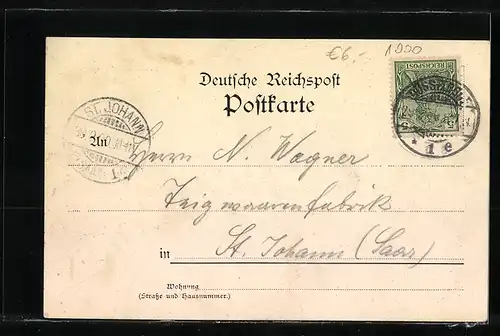 €6,- 1900
Deutsche Reichspost
Postkarte
REICHSPOST
5
ST. JOHANN
* 1 e
An
Herrn N. Wagner
Teigwarenfabrik
in St. Johann (Saar)
Wohnung
(Straße und Hausnummer.)